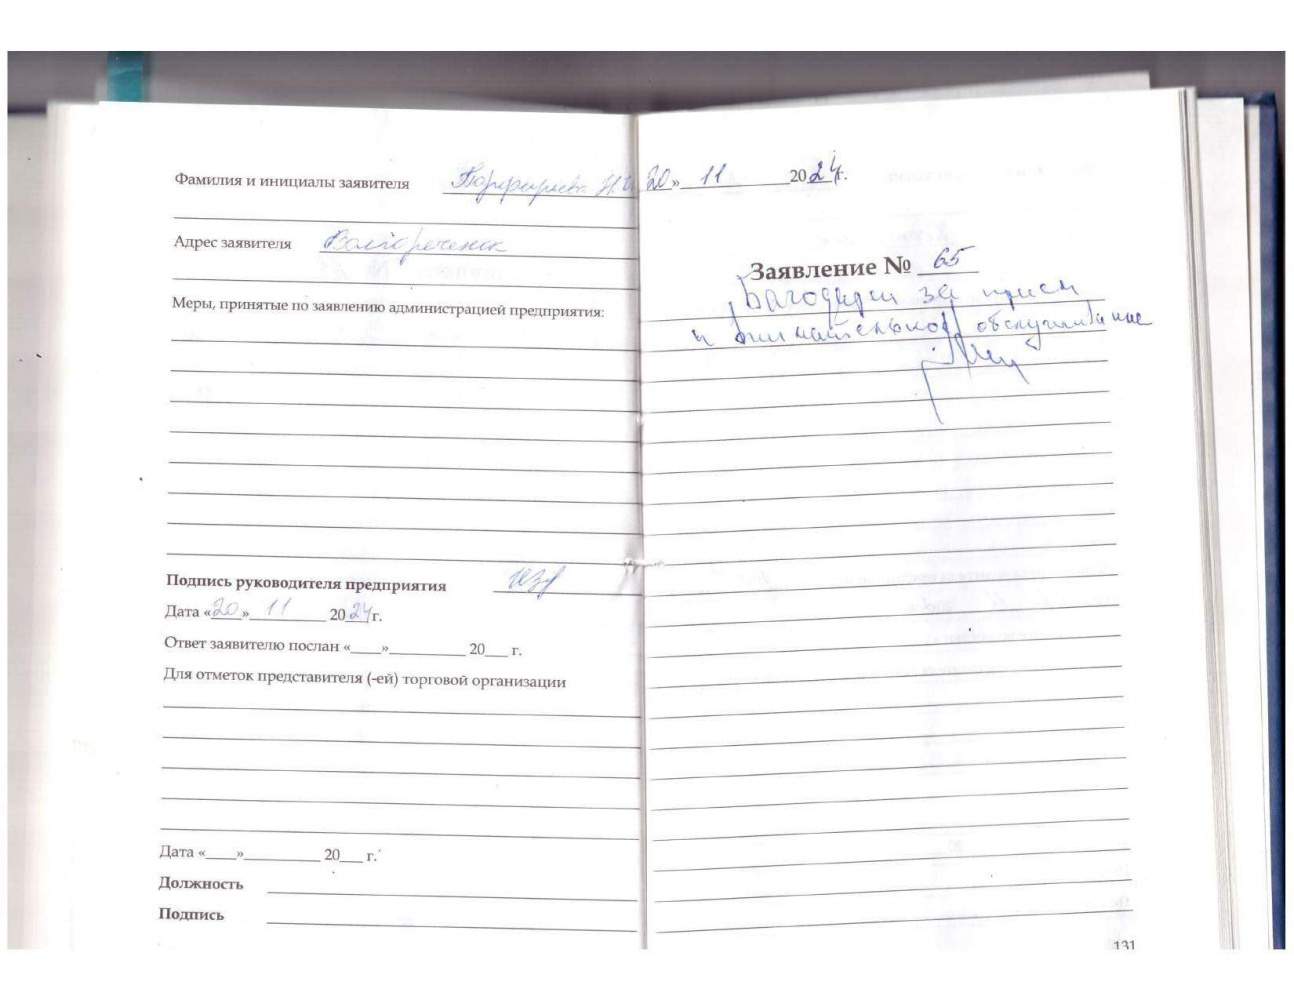 Фамилия и инициалы заявителя Порфирьева Н.
Адрес заявителя Волгореченск
Меры, принятые по заявлению администрацией предприятия:
Подпись руководителя предприятия
Дата «20» 11 2024 г.
Ответ заявителю послан «____»__________ 20___ г.
Для отметок представителя (-ей) торговой организации
Дата «____»__________ 20___ г.
Должность
Подпись
20» 11 2024г.
Заявление № 65
за прием
и внимательное обслуживание
131